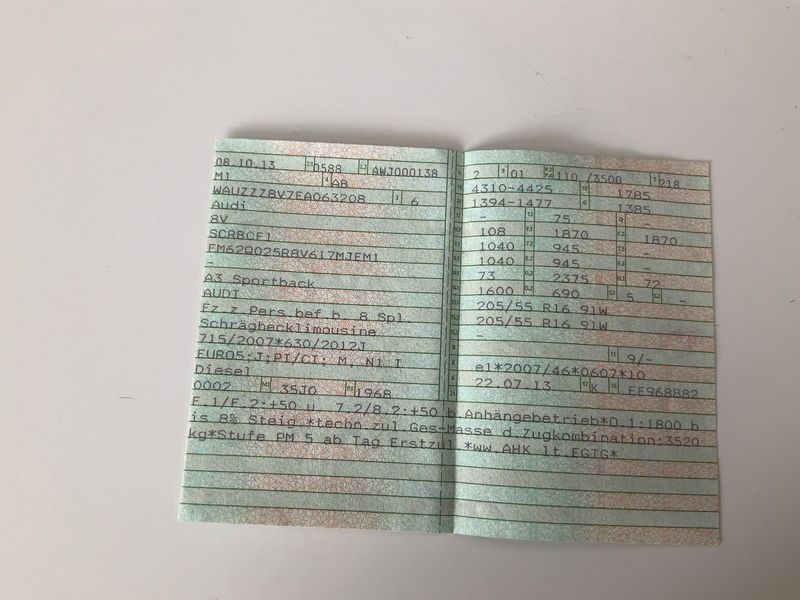 08.10.13 0588 AWJ000138
M1 AB
WAUZZZ8V7EA063208 6
Audi
8V
SCRBCF1
FM62Q025R8V617MJEM1
-
A3 Sportback
AUDI
Fz.z.Pers.bef.b. 8 Spl.
Schräghecklimousine
715/2007*630/2012J
EURO5;J;PI/CI; M, N1 I
Diesel
0002 35J0 1968
2 01 110 /3500 218
4310-4425 1785
1394-1477 1385
- 75 -
108 1870 1870
1040 945 -
1040 945 -
73 2375 72
1600 690 5 -
205/55 R16 91W
205/55 R16 91W
-
9/-
e1*2007/46*0607*10
22.07.13 K EE968882
F.1/F.2:+50 u. 7.2/8.2:+50 b.Anhängebetrieb*O.1:1800 b
is 8% Steig.*techn.zul.Ges-Masse d.Zugkombination:3520
kg*Stufe PM 5 ab Tag Erstzul.*ww.AHK lt.EGTG*